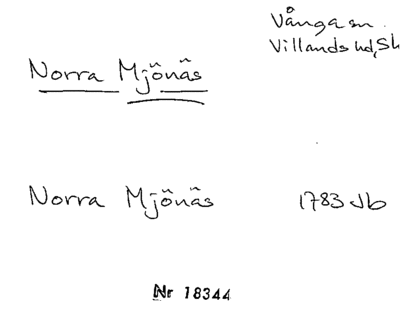 Vånga sn.
Villands hd, Sk
Norra Mjönäs
Norra Mjönäs 1783 Jb
Nr 18344